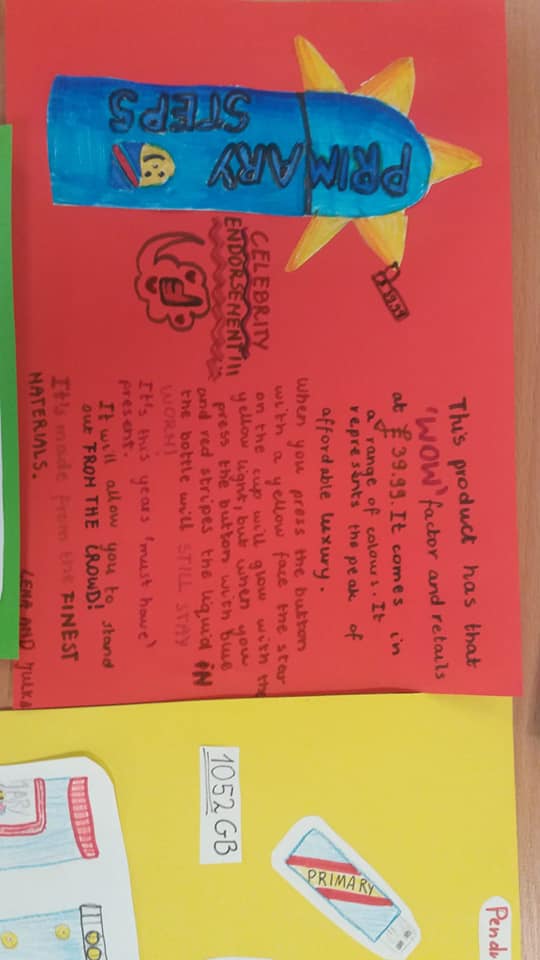 PRIMARY
STEPS
£39.99
CELEBRITY
ENDORSEMENT!!!
This product has that
'WOW' factor and retails
at £39.99. It comes in
a range of colours. It
represents the peak of
affordable luxury.
When you press the button
with a yellow face the star
on the cup will glow with the
yellow light, but when you
press the button with blue
and red stripes the liquid IN
the bottle will STILL STAY
WORM!
It's this years 'must have'
present.
It will allow you to stand
out FROM THE CROWD!
It's made from the FINEST
MATERIALS.
LENA AND Julka
1052GB
PRIMARY
MARY